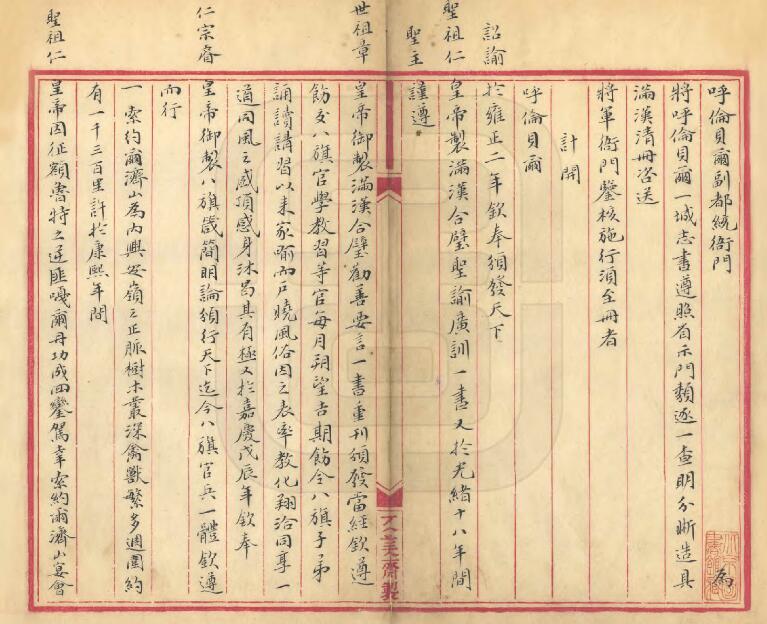 呼倫貝爾副都統衙門
為
將呼倫貝爾一城志書遵照省示門類逐一查明分晰造具
滿漢清冊咨送
將軍衙門鑒核施行須至冊者
計開
呼倫貝爾
詔諭
於雍正二年欽奉頒發天下
聖祖仁
皇帝製滿漢合璧聖諭廣訓一書又於光緒十八年間
聖主
謹遵
世祖章
皇帝御製滿漢合璧勸善要言一書重刊頒發當經欽遵
飭交八旗官學教習等官每月朔望吉期飭令八旗子弟
誦讀講習以來家喻而戶曉風俗因之表率教化翔洽同享一
道同風之盛頂感身沐曷其有極又於嘉慶戊辰年欽奉
仁宗睿
皇帝御製八旗箴簡明論頒行天下迄今八旗官兵一體欽遵
而行
一索約爾濟山為內興安嶺之正脈樹木叢深禽獸繁多週圍約
有一千三百里許於康熙年間
聖祖仁
皇帝因征額魯特之逆匪噶爾丹功成回鑾駕幸索約爾濟山宴會